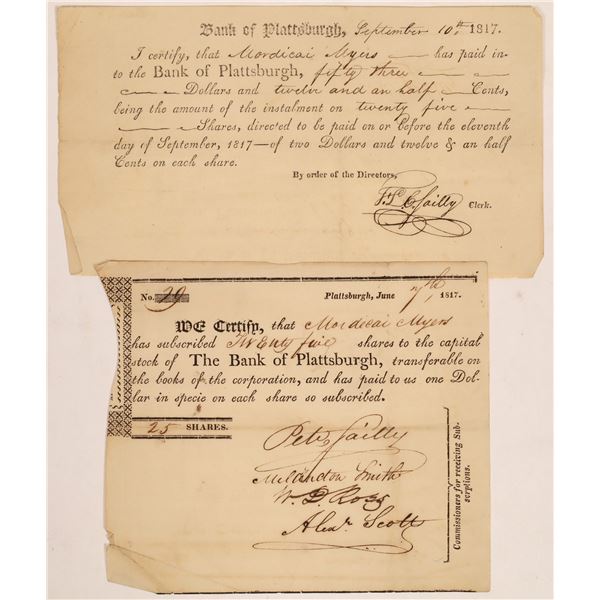 Bank of Plattsburgh, September 10th 1817.
I certify, that Mordicai Myers has paid in-
to the Bank of Plattsburgh, fifty three
Dollars and twelve and an half Cents,
being the amount of the instalment on twenty five
Shares, directed to be paid on or before the eleventh
day of September, 1817—of two Dollars and twelve & an half
Cents on each share.
By order of the Directors,
Clerk.
No. 29 Plattsburgh, June 7th, 1817.
WE Certify, that Mordicai Myers
has subscribed Twenty five shares to the capital
stock of The Bank of Plattsburgh, transferable on
the books of the corporation, and has paid to us one Dol-
lar in specie on each share so subscribed.
25 SHARES.
Peter Sailly
Melancton Smith
W. D. Ross
Alexr. Scott
Commissioners for receiving Sub-
scriptions.